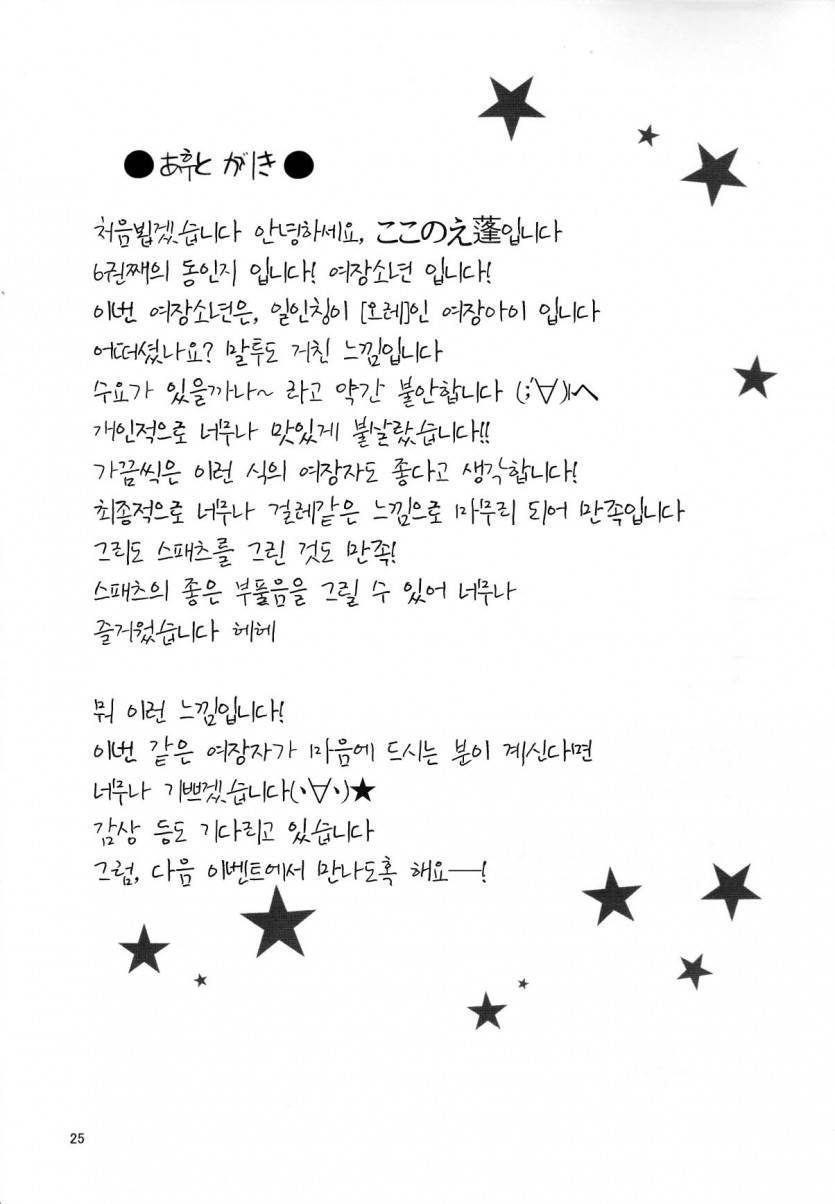 ●あ휴と がき●
처음뵙겠습니다 안녕하세요, ここのえ蓬입니다
6권째의 동인지 입니다! 여장소년 입니다!
이번 여장소년은, 일인칭이 [오레]인 여장아이 입니다
어떠셨나요? 말투도 거친 느낌입니다
수요가 있을까나~ 라고 약간 불안합니다 (;´∀`)ㅣへ
개인적으로 너무나 맛있게 불살랐습니다!!
가끔씩은 이런 식의 여장자도 좋다고 생각합니다!
최종적으로 너무나 걸레같은 느낌으로 마무리 되어 만족입니다
그리도 스패츠를 그린 것도 만족!
스패츠의 좋은 부풀음을 그릴 수 있어 너무나
즐거웠습니다 헤헤
뭐 이런 느낌입니다!
이번 같은 여장자가 마음에 드시는 분이 계신다면
너무나 기쁘겠습니다(ヽ∀ヽ)★
감상 등도 기다리고 있습니다
그럼, 다음 이벤트에서 만나도혹 해요──!
25